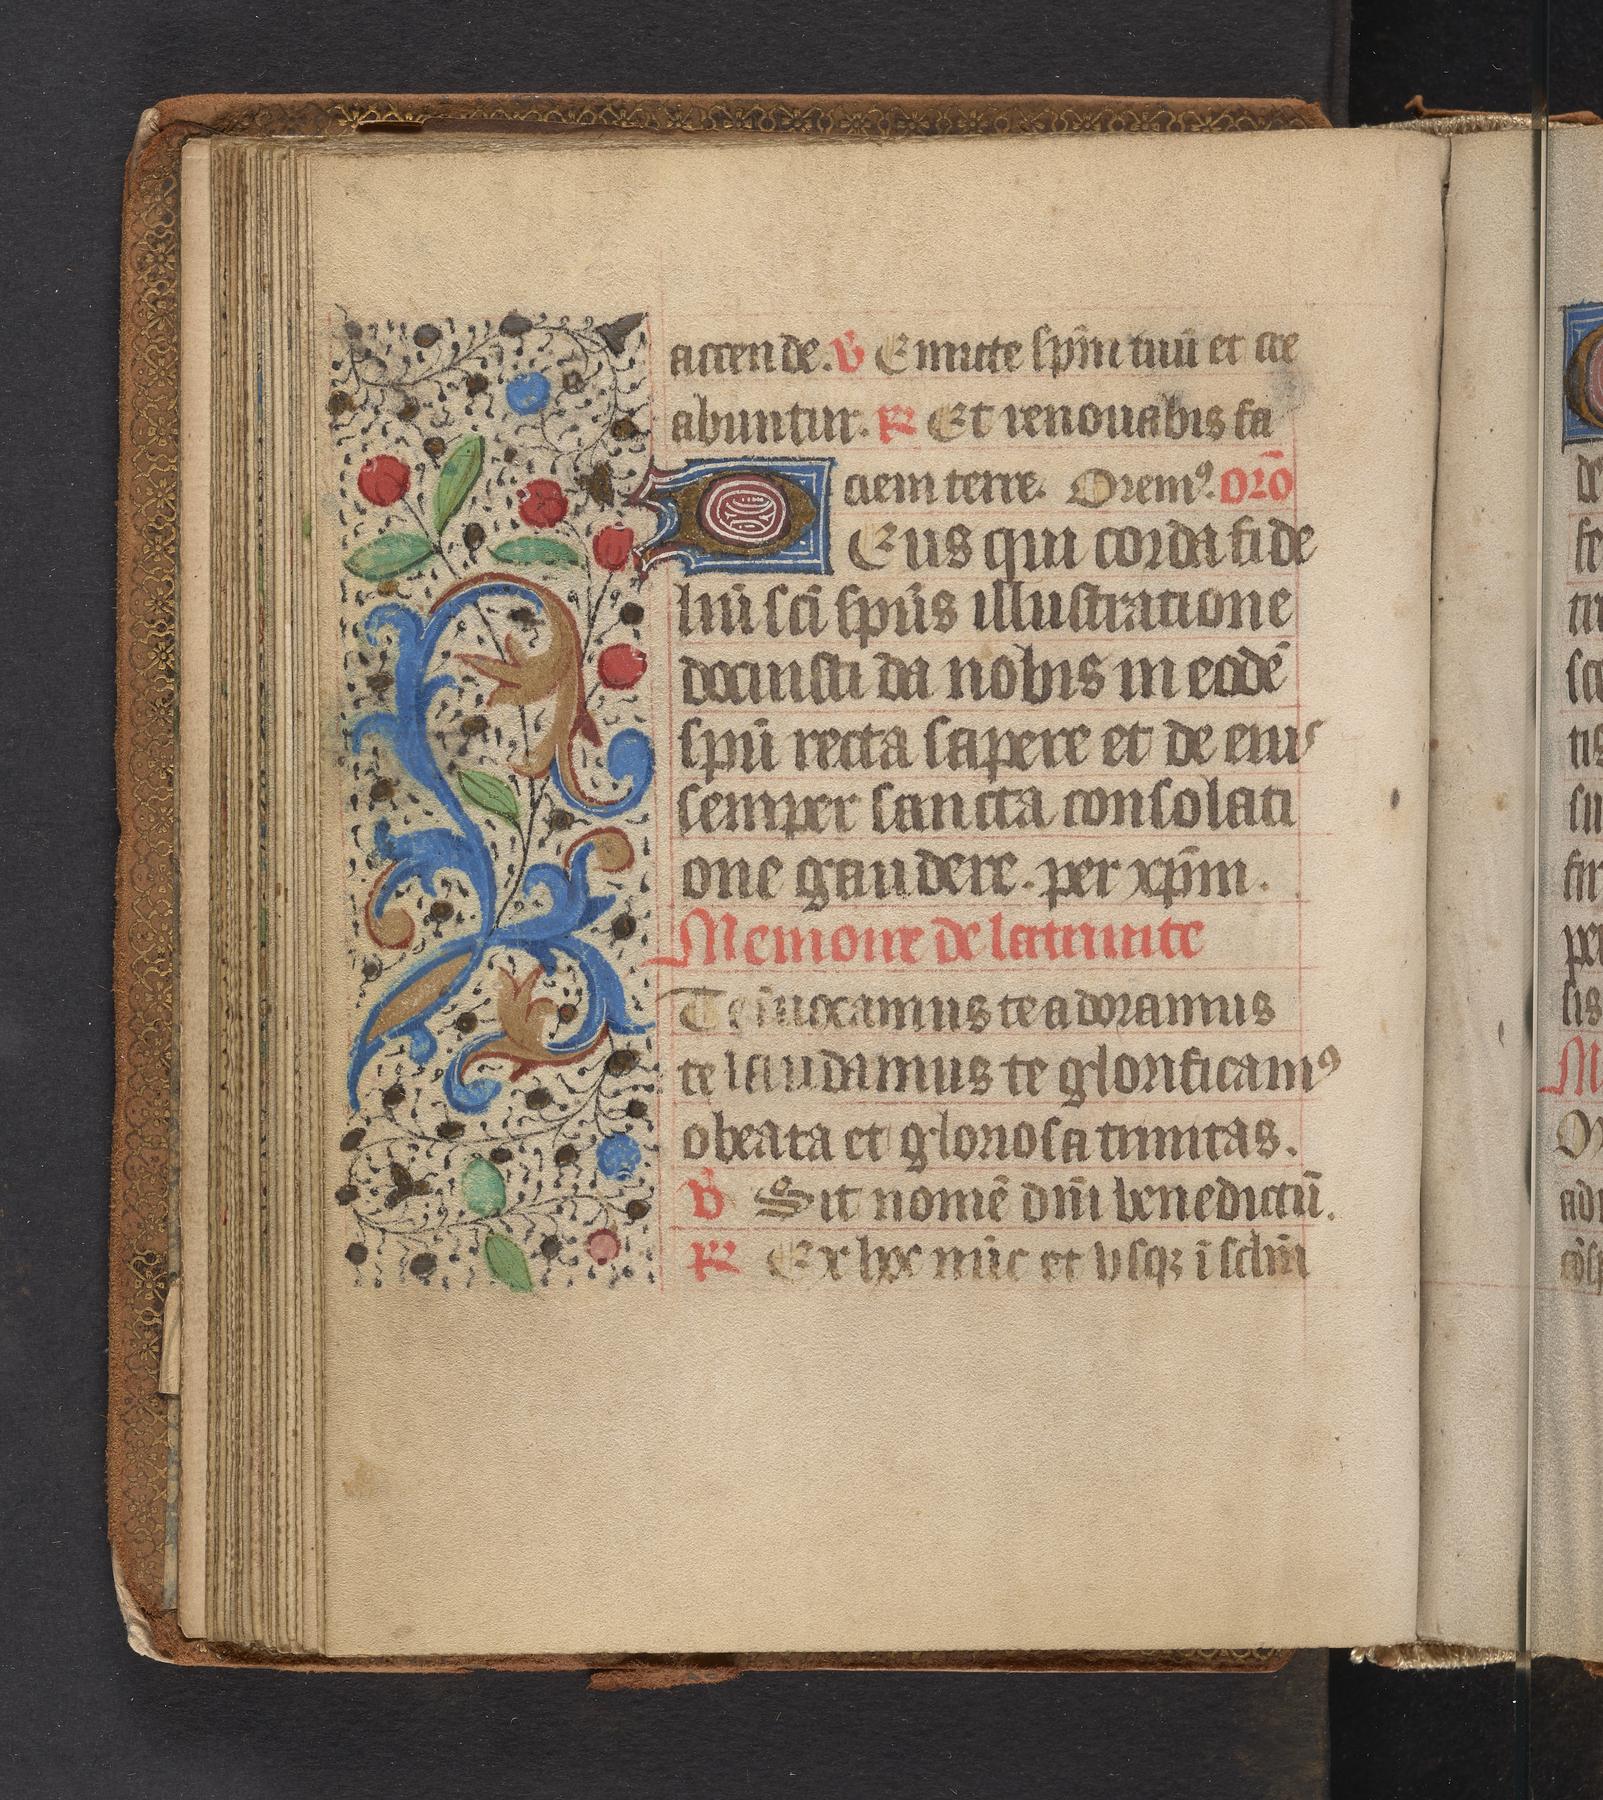 accende. V Emitte spm̄ tuū et cre
abuntur. R Et renouabis fa
ciem terre. Oremꝰ. Orō
Deus qui corda fide
liū sci spūs illustratione
docuisti da nobis in eodē
spū recta sapere et de eius
semper sancta consolati
one gaudere. per xpm̄.
Memoire de la trinite
Te īuocamus te adoramus
te laudamus te glorificamꝰ
o beata et gloriosa trinitas.
V Sit nomē dn̄i benedictū.
R Ex hoc nūc et vsqꝫ ī sclm̄